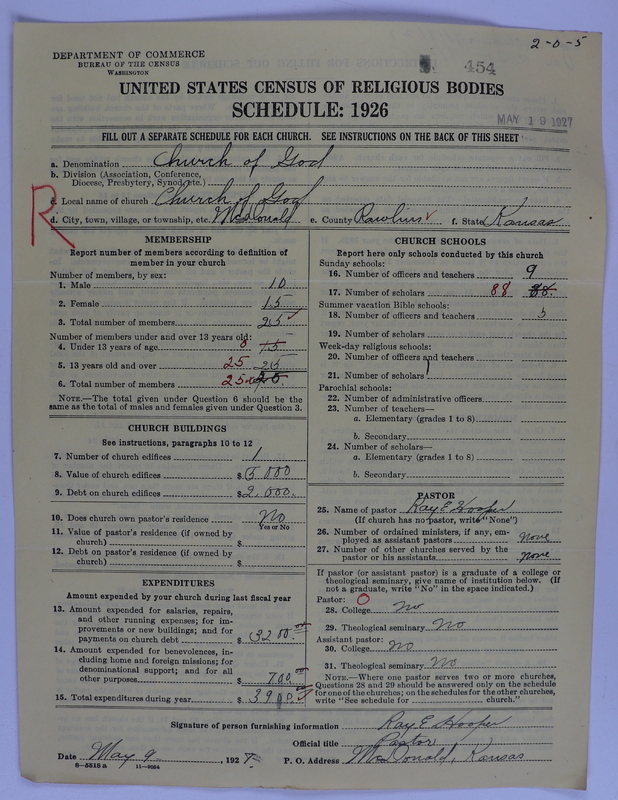 2-0-5
DEPARTMENT OF COMMERCE
BUREAU OF THE CENSUS
WASHINGTON
454
UNITED STATES CENSUS OF RELIGIOUS BODIES
SCHEDULE: 1926
MAY 19 1927
FILL OUT A SEPARATE SCHEDULE FOR EACH CHURCH. SEE INSTRUCTIONS ON THE BACK OF THIS SHEET
a. Denomination Church of God
b. Division (Association, Conference,
Diocese, Presbytery, Synod, etc.)
R
c. Local name of church Church of God
d. City, town, village, or township, etc. McDonald e. County Rawlins f. State Kansas
MEMBERSHIP
Report number of members according to definition of
member in your church
Number of members, by sex:
1. Male 10
2. Female 15
3. Total number of members 25
Number of members under and over 13 years old:
4. Under 13 years of age 0 15
5. 13 years old and over 25 25
6. Total number of members 25 25
NOTE.—The total given under Question 6 should be
same as the total of males and females given under Question 3.
CHURCH BUILDINGS
See instructions, paragraphs 10 to 12
7. Number of church edifices 1
8. Value of church edifices $5000
9. Debt on church edifices $2,000.
10. Does church own pastor's residence No
Yes or No
11. Value of pastor's residence (if owned by
church) $
12. Debt on pastor's residence (if owned by
church) $
EXPENDITURES
Amount expended by your church during last fiscal year
13. Amount expended for salaries, repairs,
and other running expenses; for im-
provements or new buildings; and for
payments on church debt $3200.00
14. Amount expended for benevolences, in-
cluding home and foreign missions; for
denominational support; and for all
other purposes $700.00
15. Total expenditures during year $3900.00
CHURCH SCHOOLS
Report here only schools conducted by this church
Sunday schools:
16. Number of officers and teachers 9
17. Number of scholars 88 88.
Summer vacation Bible schools:
18. Number of officers and teachers 5
19. Number of scholars
Week-day religious schools:
20. Number of officers and teachers
21. Number of scholars
Parochial schools:
22. Number of administrative officers
23. Number of teachers—
a. Elementary (grades 1 to 8)
b. Secondary
24. Number of scholars—
a. Elementary (grades 1 to 8)
b. Secondary
PASTOR
25. Name of pastor Ray E Hooper
(If church has no pastor, write "None")
26. Number of ordained ministers, if any, em-
ployed as assistant pastors none
27. Number of other churches served by the
pastor or his assistants none
If pastor (or assistant pastor) is a graduate of a college or
theological seminary, give name of institution below. (If
not a graduate, write "No" in the space indicated.)
Pastor: O
28. College No
29. Theological seminary No
Assistant pastor:
30. College No
31. Theological seminary No
NOTE.—Where one pastor serves two or more churches,
Questions 28 and 29 should be answered only on the schedule
for one of the churches; on the schedules for the other churches,
write "See schedule for church."
Signature of person furnishing information Ray E Hooper
Official title Pastor
Date May 9, 1927 P. O. Address McDonald, Kansas
8—5518 a 11—9054